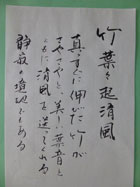 竹葉々起清風
真っすぐに伸びた竹が
さやさやと、美しい葉音と
ともに清風を送ってくれる
静寂の境地である